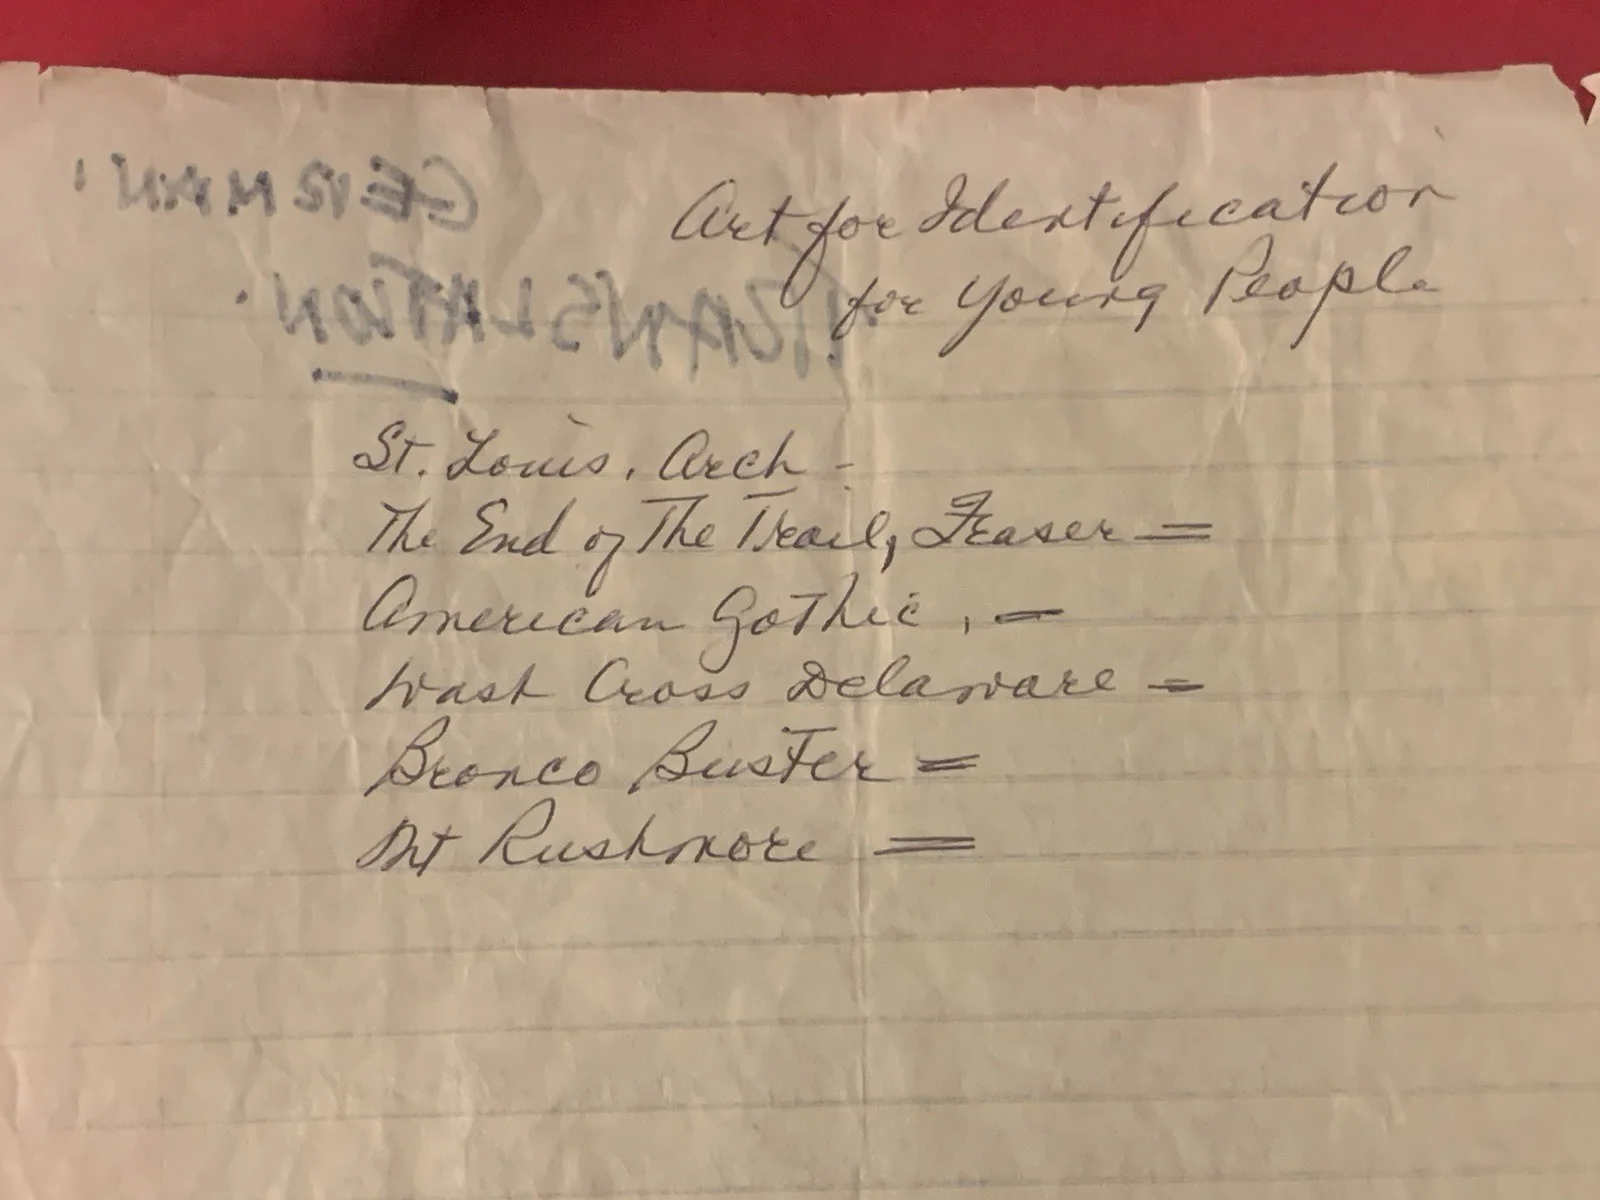 Art for Identification
for Young People
TRANSLATION.
St. Louis. Arch -
The End of The Trail, Fraser =
American Gothic, =
Wash Cross Delaware =
Bronco Buster =
Mt Rushmore =